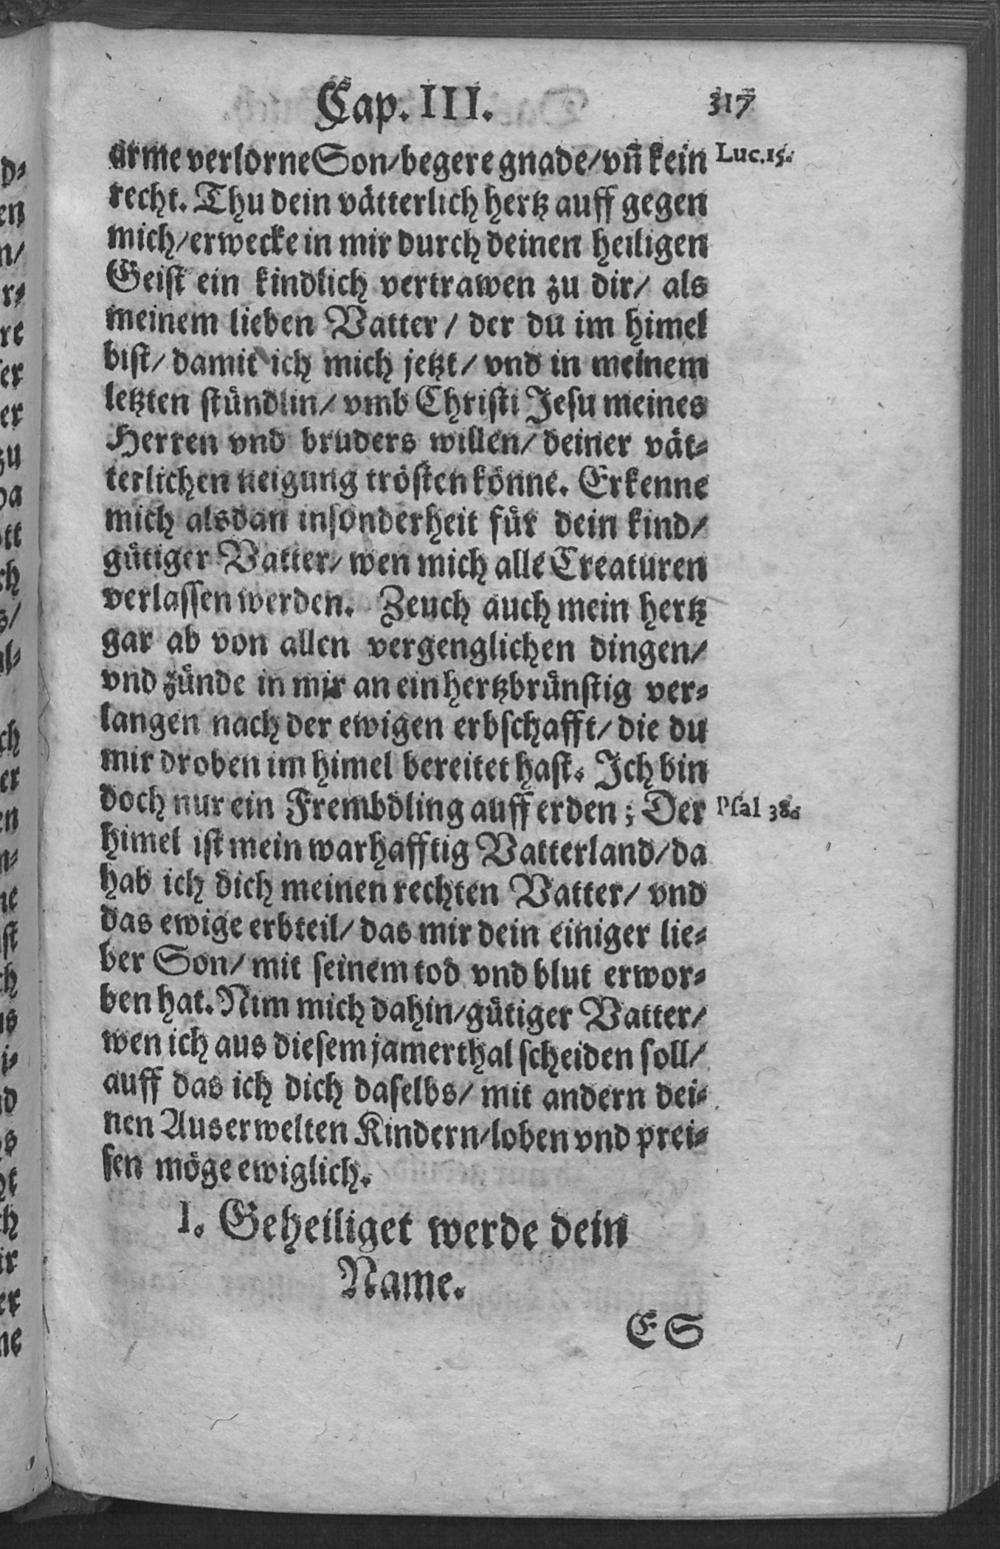 Cap. III. 317
arme verlorne Son/begere gnade/vñ kein Luc.15.
recht. Thu dein vätterlich hertz auff gegen
mich/erwecke in mir durch deinen heiligen
Geist ein kindlich vertrawen zu dir/ als
meinem lieben Vatter/ der du im himel
bist/ damit ich mich jetzt/ vnd in meinem
letzten stündlin/ vmb Christi Jesu meines
Herren vnd bruders willen/ deiner vät-
terlichen neigung trösten könne. Erkenne
mich alsdan insonderheit für dein kind/
gütiger Vatter/ wen mich alle Creaturen
verlassen werden. Zeuch auch mein hertz
gar ab von allen vergenglichen dingen/
vnd zünde in mir an ein hertzbrünstig ver-
langen nach der ewigen erbschafft/ die du
mir droben im himel bereitet hast. Ich bin
doch nur ein Frembdling auff erden; Der Psal 38.
himel ist mein warhafftig Vatterland/da
hab ich dich meinen rechten Vatter/ vnd
das ewige erbteil/ das mir dein einiger lie-
ber Son/ mit seinem tod vnd blut erwor-
ben hat. Nim mich dahin/gütiger Vatter/
wen ich aus diesem jamerthal scheiden soll/
auff das ich dich daselbs/ mit andern dei-
nen Auserwelten Kindern/loben vnd prei-
sen möge ewiglich.
I. Geheiliget werde dein
Name.
ES